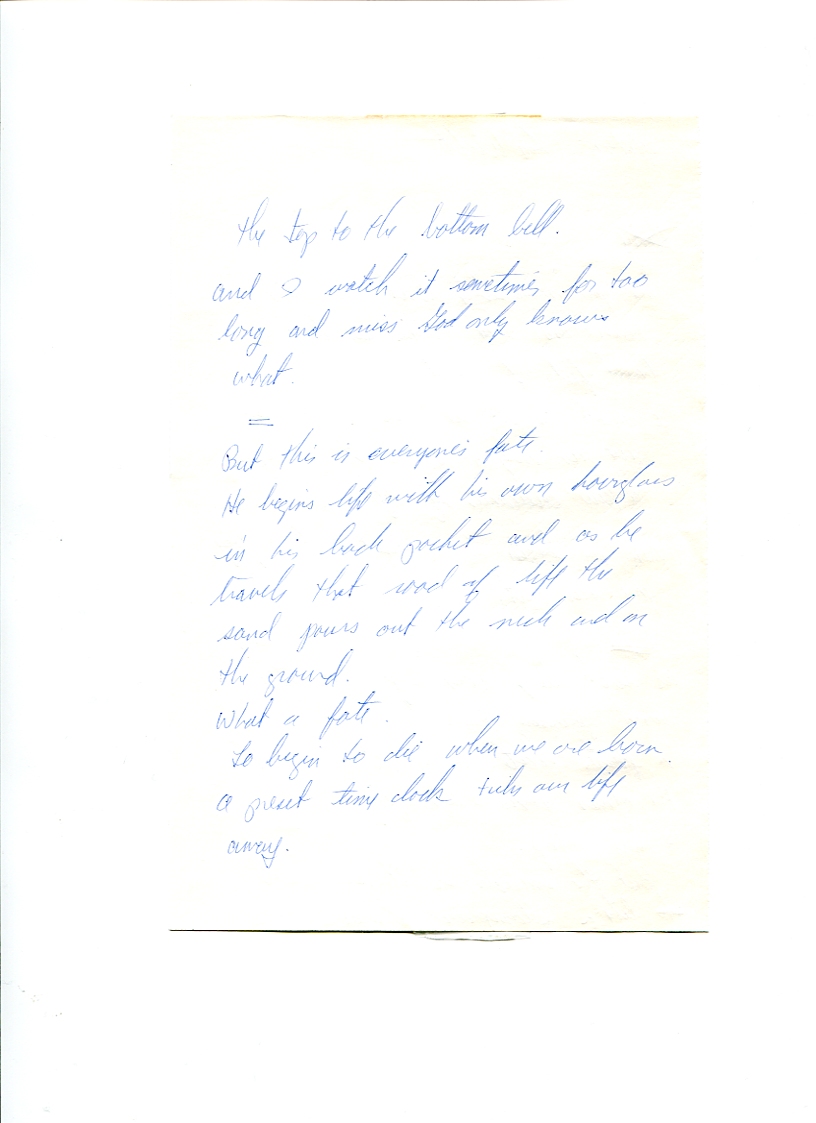 the top to the bottom bell.
and I watch it sometimes for too
long and miss God only knows
what.
=
But this is everyone's fate.
He begins life with his own hourglass
in his back pocket and as he
travels that road of life the
sand pours out the neck and on
the ground.
What a fate.
To begin to die when we are born
a preset time clock ticks our life
away.